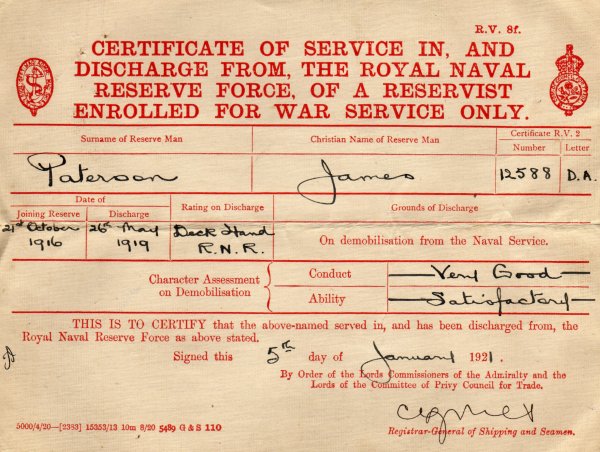 R.V. 8f.
CERTIFICATE OF SERVICE IN, AND
DISCHARGE FROM, THE ROYAL NAVAL
RESERVE FORCE, OF A RESERVIST
ENROLLED FOR WAR SERVICE ONLY.
Surname of Reserve Man
Christian Name of Reserve Man
Certificate R.V. 2
Number
Letter
Paterson
James
12588
D.A.
Date of
Joining Reserve
Discharge
Rating on Discharge
Grounds of Discharge
21st October
1916
26th May
1919
Deck Hand
R.N.R.
On demobilisation from the Naval Service.
Character Assessment
on Demobilisation
Conduct
Very Good
Ability
Satisfactory
THIS IS TO CERTIFY that the above-named served in, and has been discharged from, the
Royal Naval Reserve Force as above stated.
Signed this 5th day of January 1921.
By Order of the Lords Commissioners of the Admiralty and the
Lords of the Committee of Privy Council for Trade.
Registrar-General of Shipping and Seamen.
5000/4/20—[2383] 15353/13 10m 8/20 5489 G & S 110